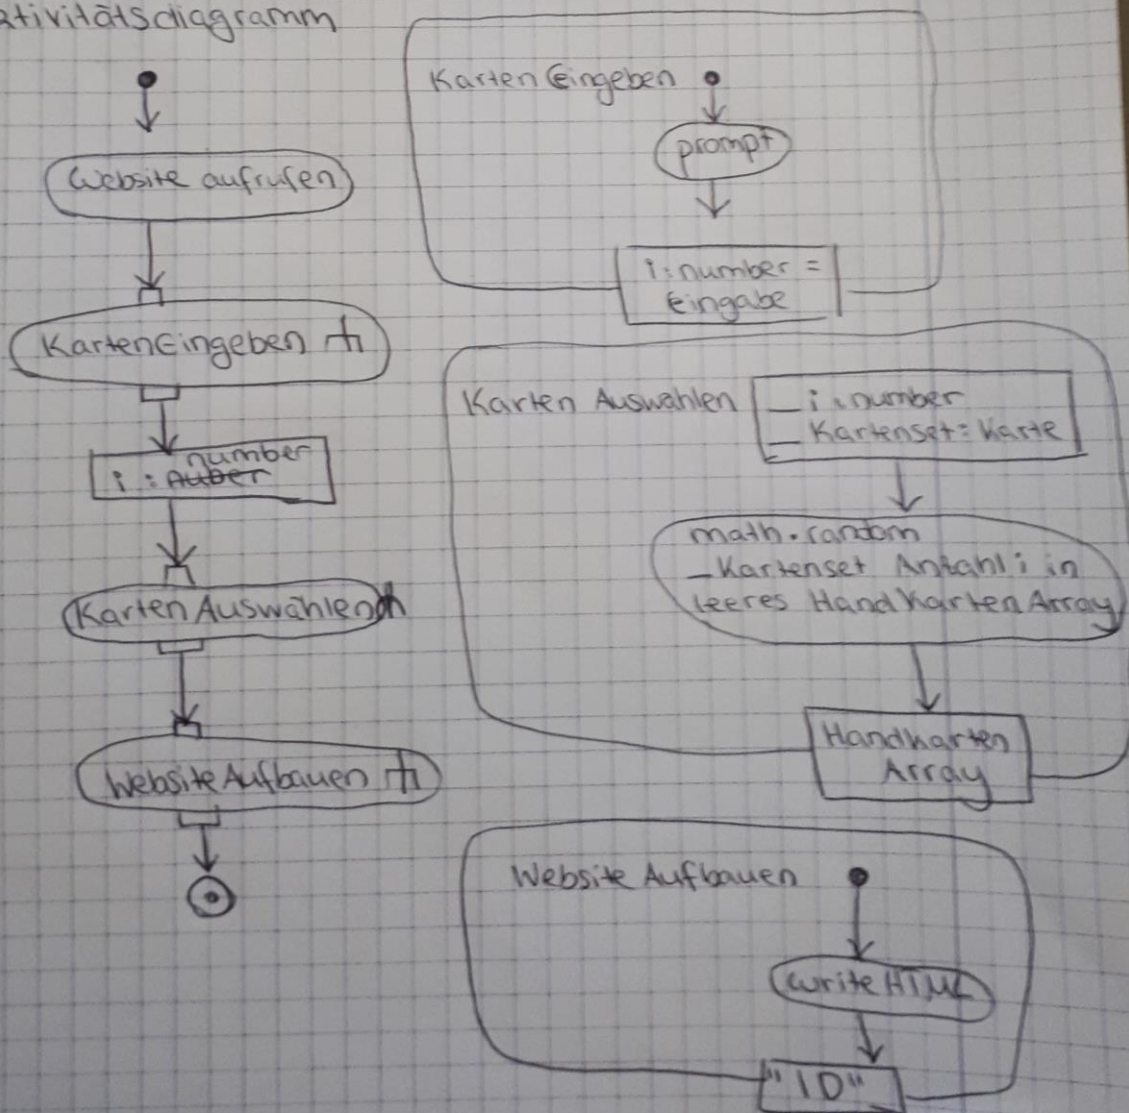 ktivitätsdiagramm
Website aufrufen
KartenEingeben
number
i : Auber
Karten Auswählen
Website Aufbauen
Karten Eingeben
prompt
i : number =
Eingabe
Karten Auswahlen
_ i : number
_ Kartenset : Karte
math.random
_ Kartenset Anzahl i in
leeres Handkarten Array
Handkarten
Array
Website Aufbauen
write HTML
"ID"